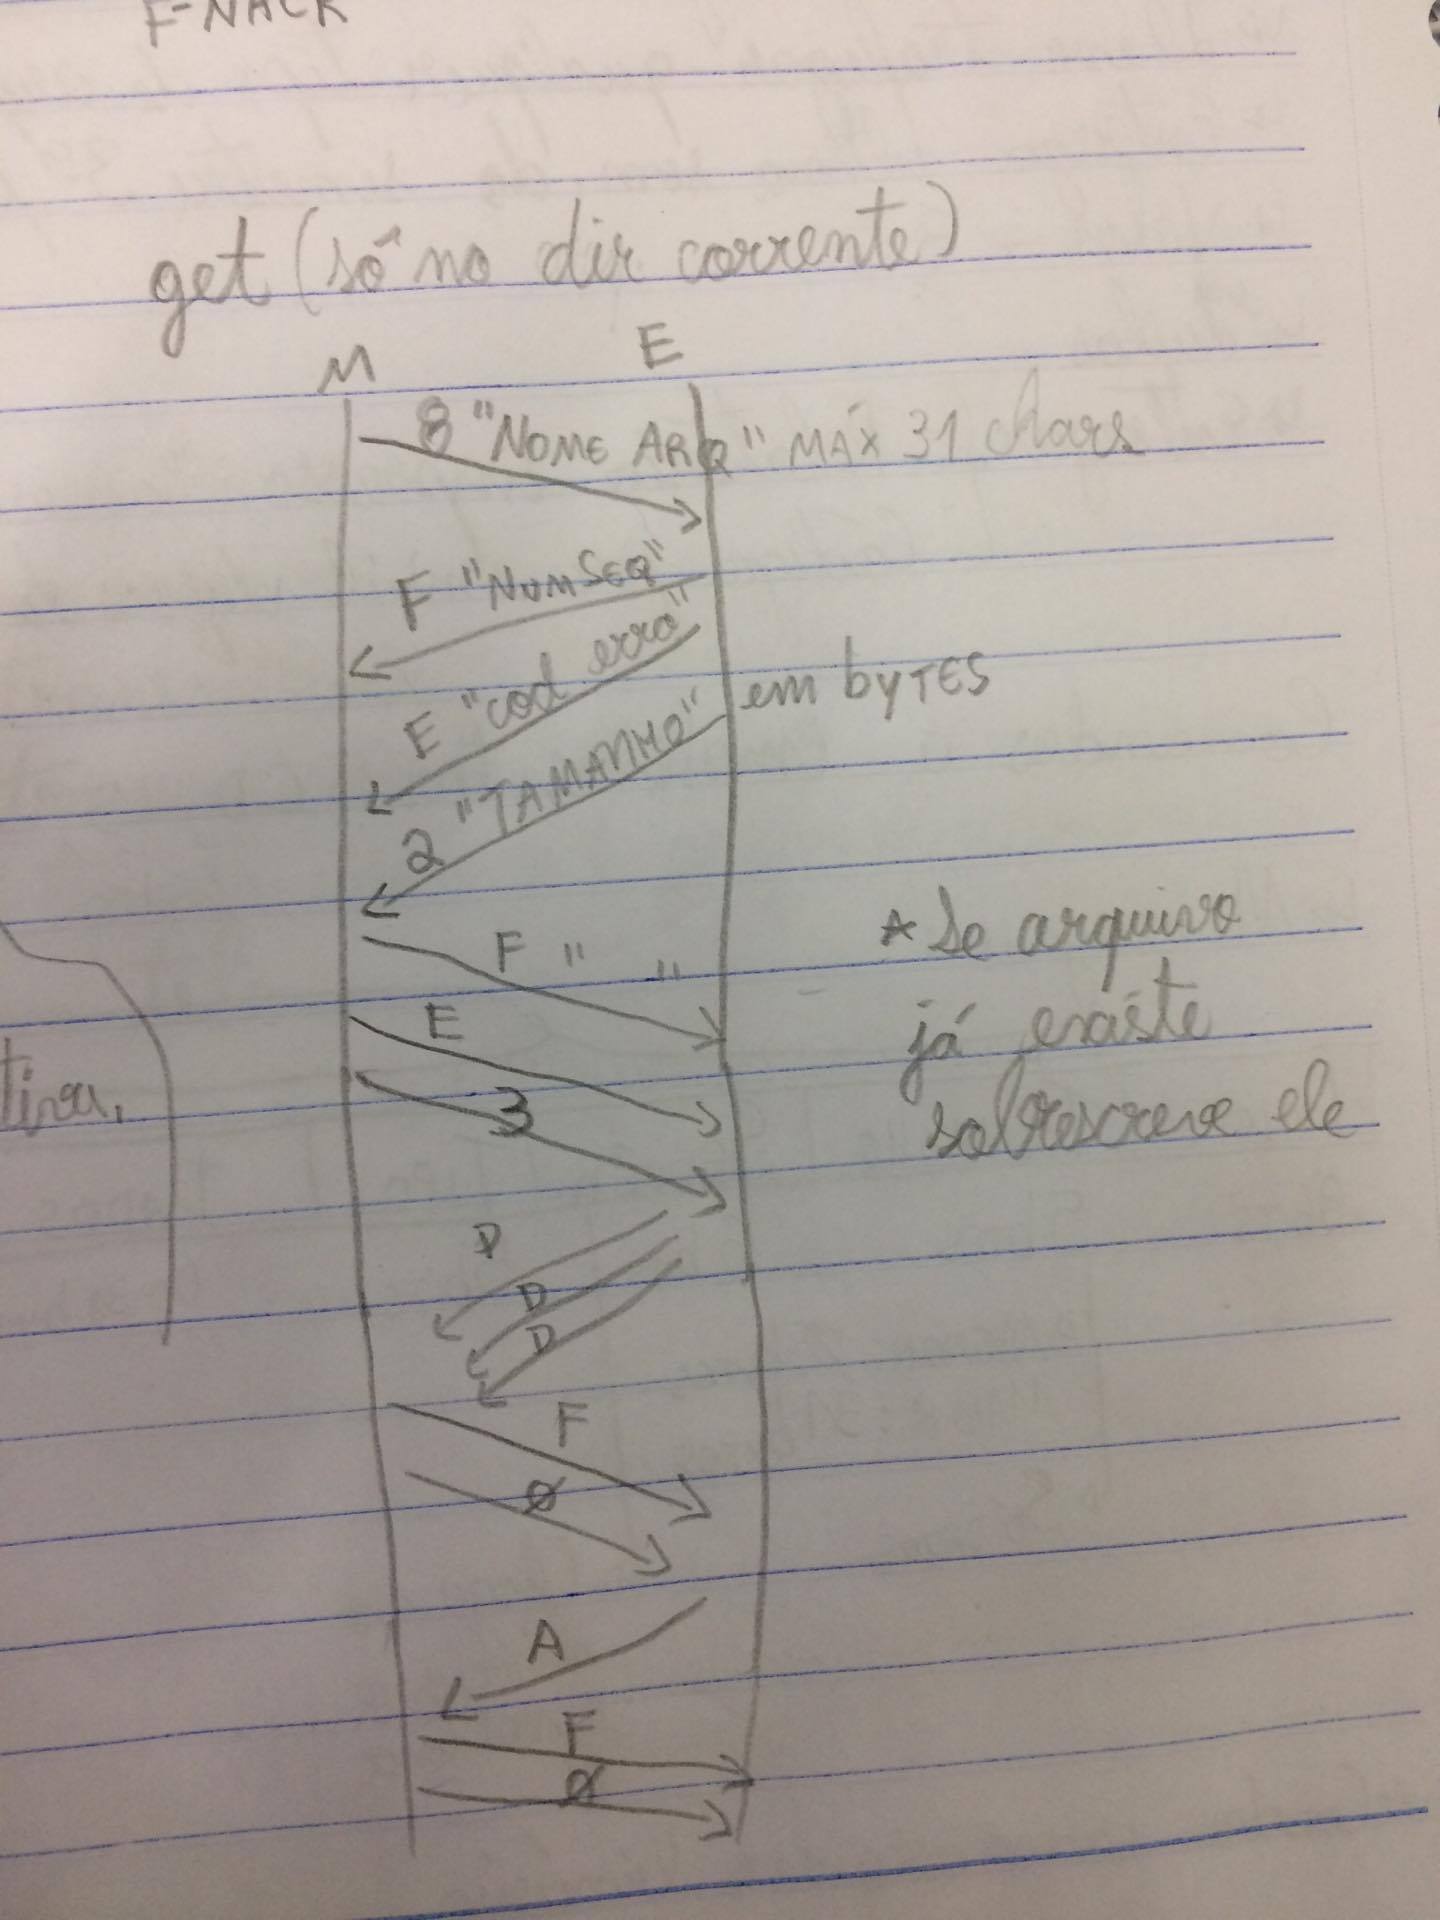 F-NACK
get (só no dir corrente)
M E
8 "NOME ARQ" MÁX 31 chars
F "NUMSEQ"
E "cod erro"
2 "TAMANHO" em bYTES
F " "
* Se arquivo
E
já existe
3
sobrescreve ele
D
D
D
F
Ø
A
F
Ø